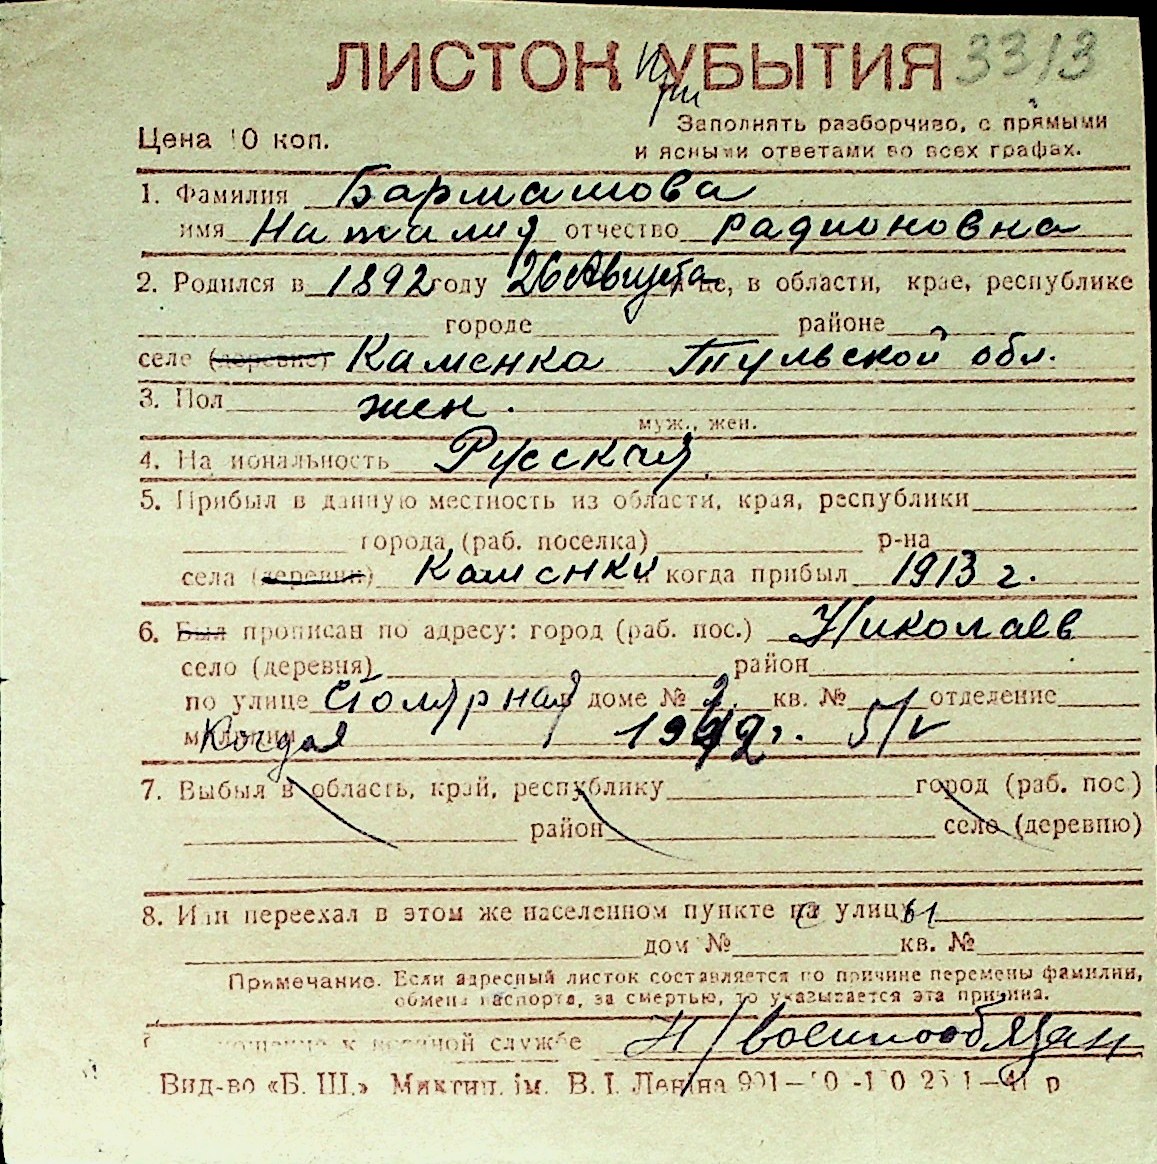 ЛИСТОК УБЫТИЯ 3313
при
Цена 10 коп.
Заполнять разборчиво, с прямыми
и ясными ответами во всех графах.
1. Фамилия Бармашова
имя Наталия отчество Радионовна
2. Родился в 1892 году 26 Августа, в области, крае, республике
городе районе
селе (деревне) Каменка Тульской обл.
3. Пол жен.
муж., жен.
4. Национальность Русская
5. Прибыл в данную местность из области, края, республики
города, (раб. поселка) р-на
села (деревни) Каменки когда прибыл 1913 г.
6. Был прописан по адресу: город (раб. пос.) Николаев
село (деревня) район
по улице Столярная доме № 2 кв. № отделение
милиции Когда 5/V
7. Выбыл в область, край, республику город (раб. пос.)
район село (деревню)
8. Или переехал в этом же населенном пункте с улицы
дом № кв. №
Примечание. Если адресный листок составляется по причине перемены фамилии,
обмена паспорта, за смертью, то указывается эта причина.
отношение к военной службе н/военнообязан
Вид-во «Б. Ш.» Микгип. ім. В. І. Леніна